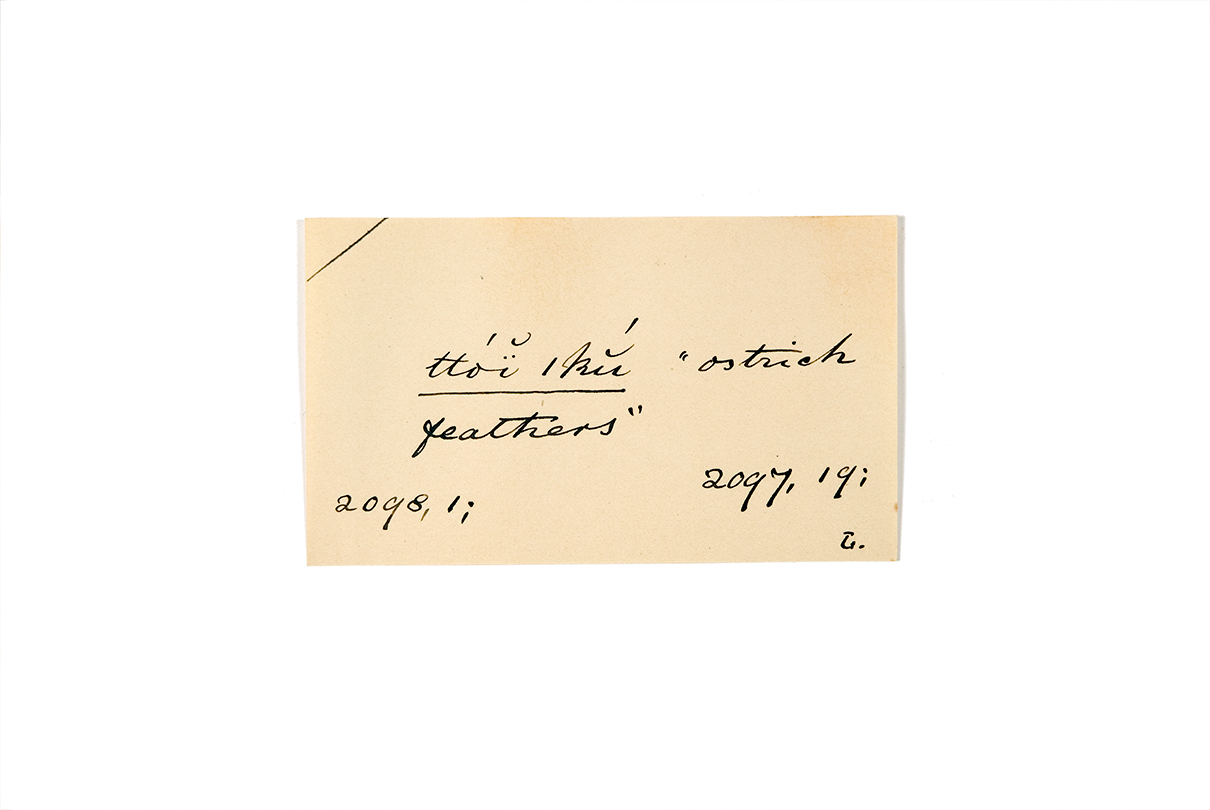 ttóï̆ ıkŭ́ "ostrich
feathers"
2097, 19;
2098, 1;
L.